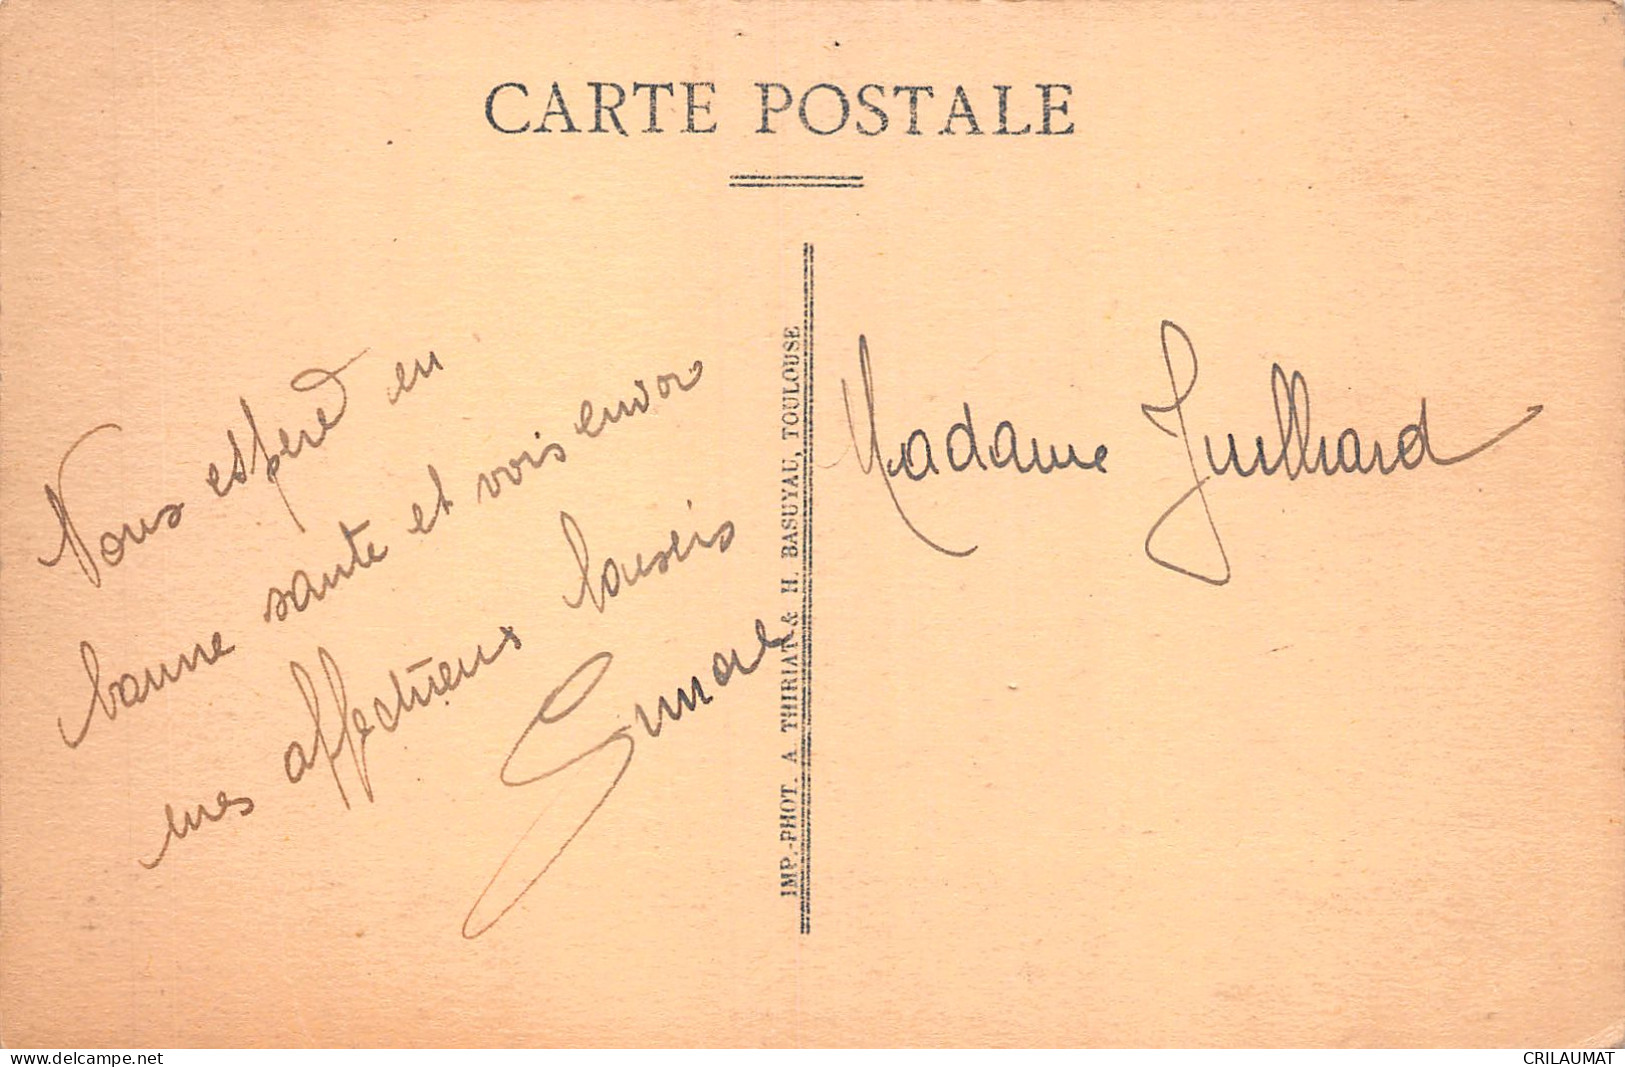 CARTE POSTALE
Vous espère en
bonne sante et vois envoi
mes affectueux baisers
Simone
IMP.-PHOT. A. THIRIAT & H. BASUYAU, TOULOUSE
Madame Juilhard
delcampe.net
CRILAUMAT